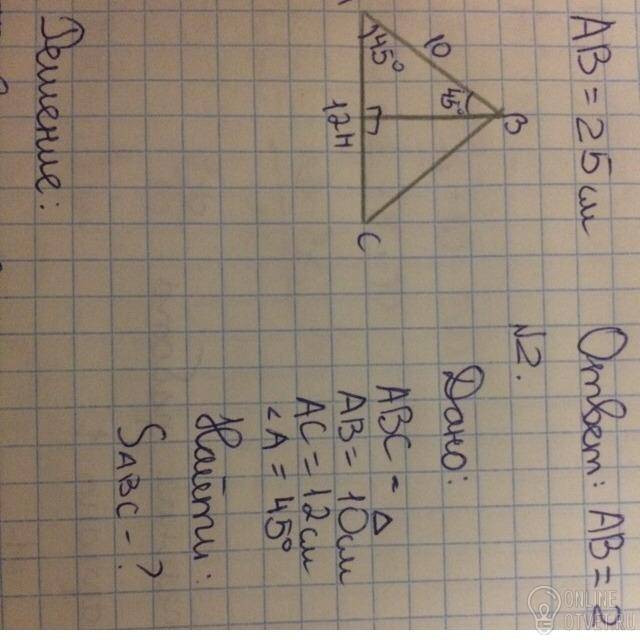 AB = 25 см
Ответ: AB = 2
№2.
A
B
C
10
45°
45°
12
H
Дано:
ABC - △
AB = 10см
AC = 12см
∠A = 45°
Найти:
S ABC - ?
Решение:
ONLINE
OTVET.RU